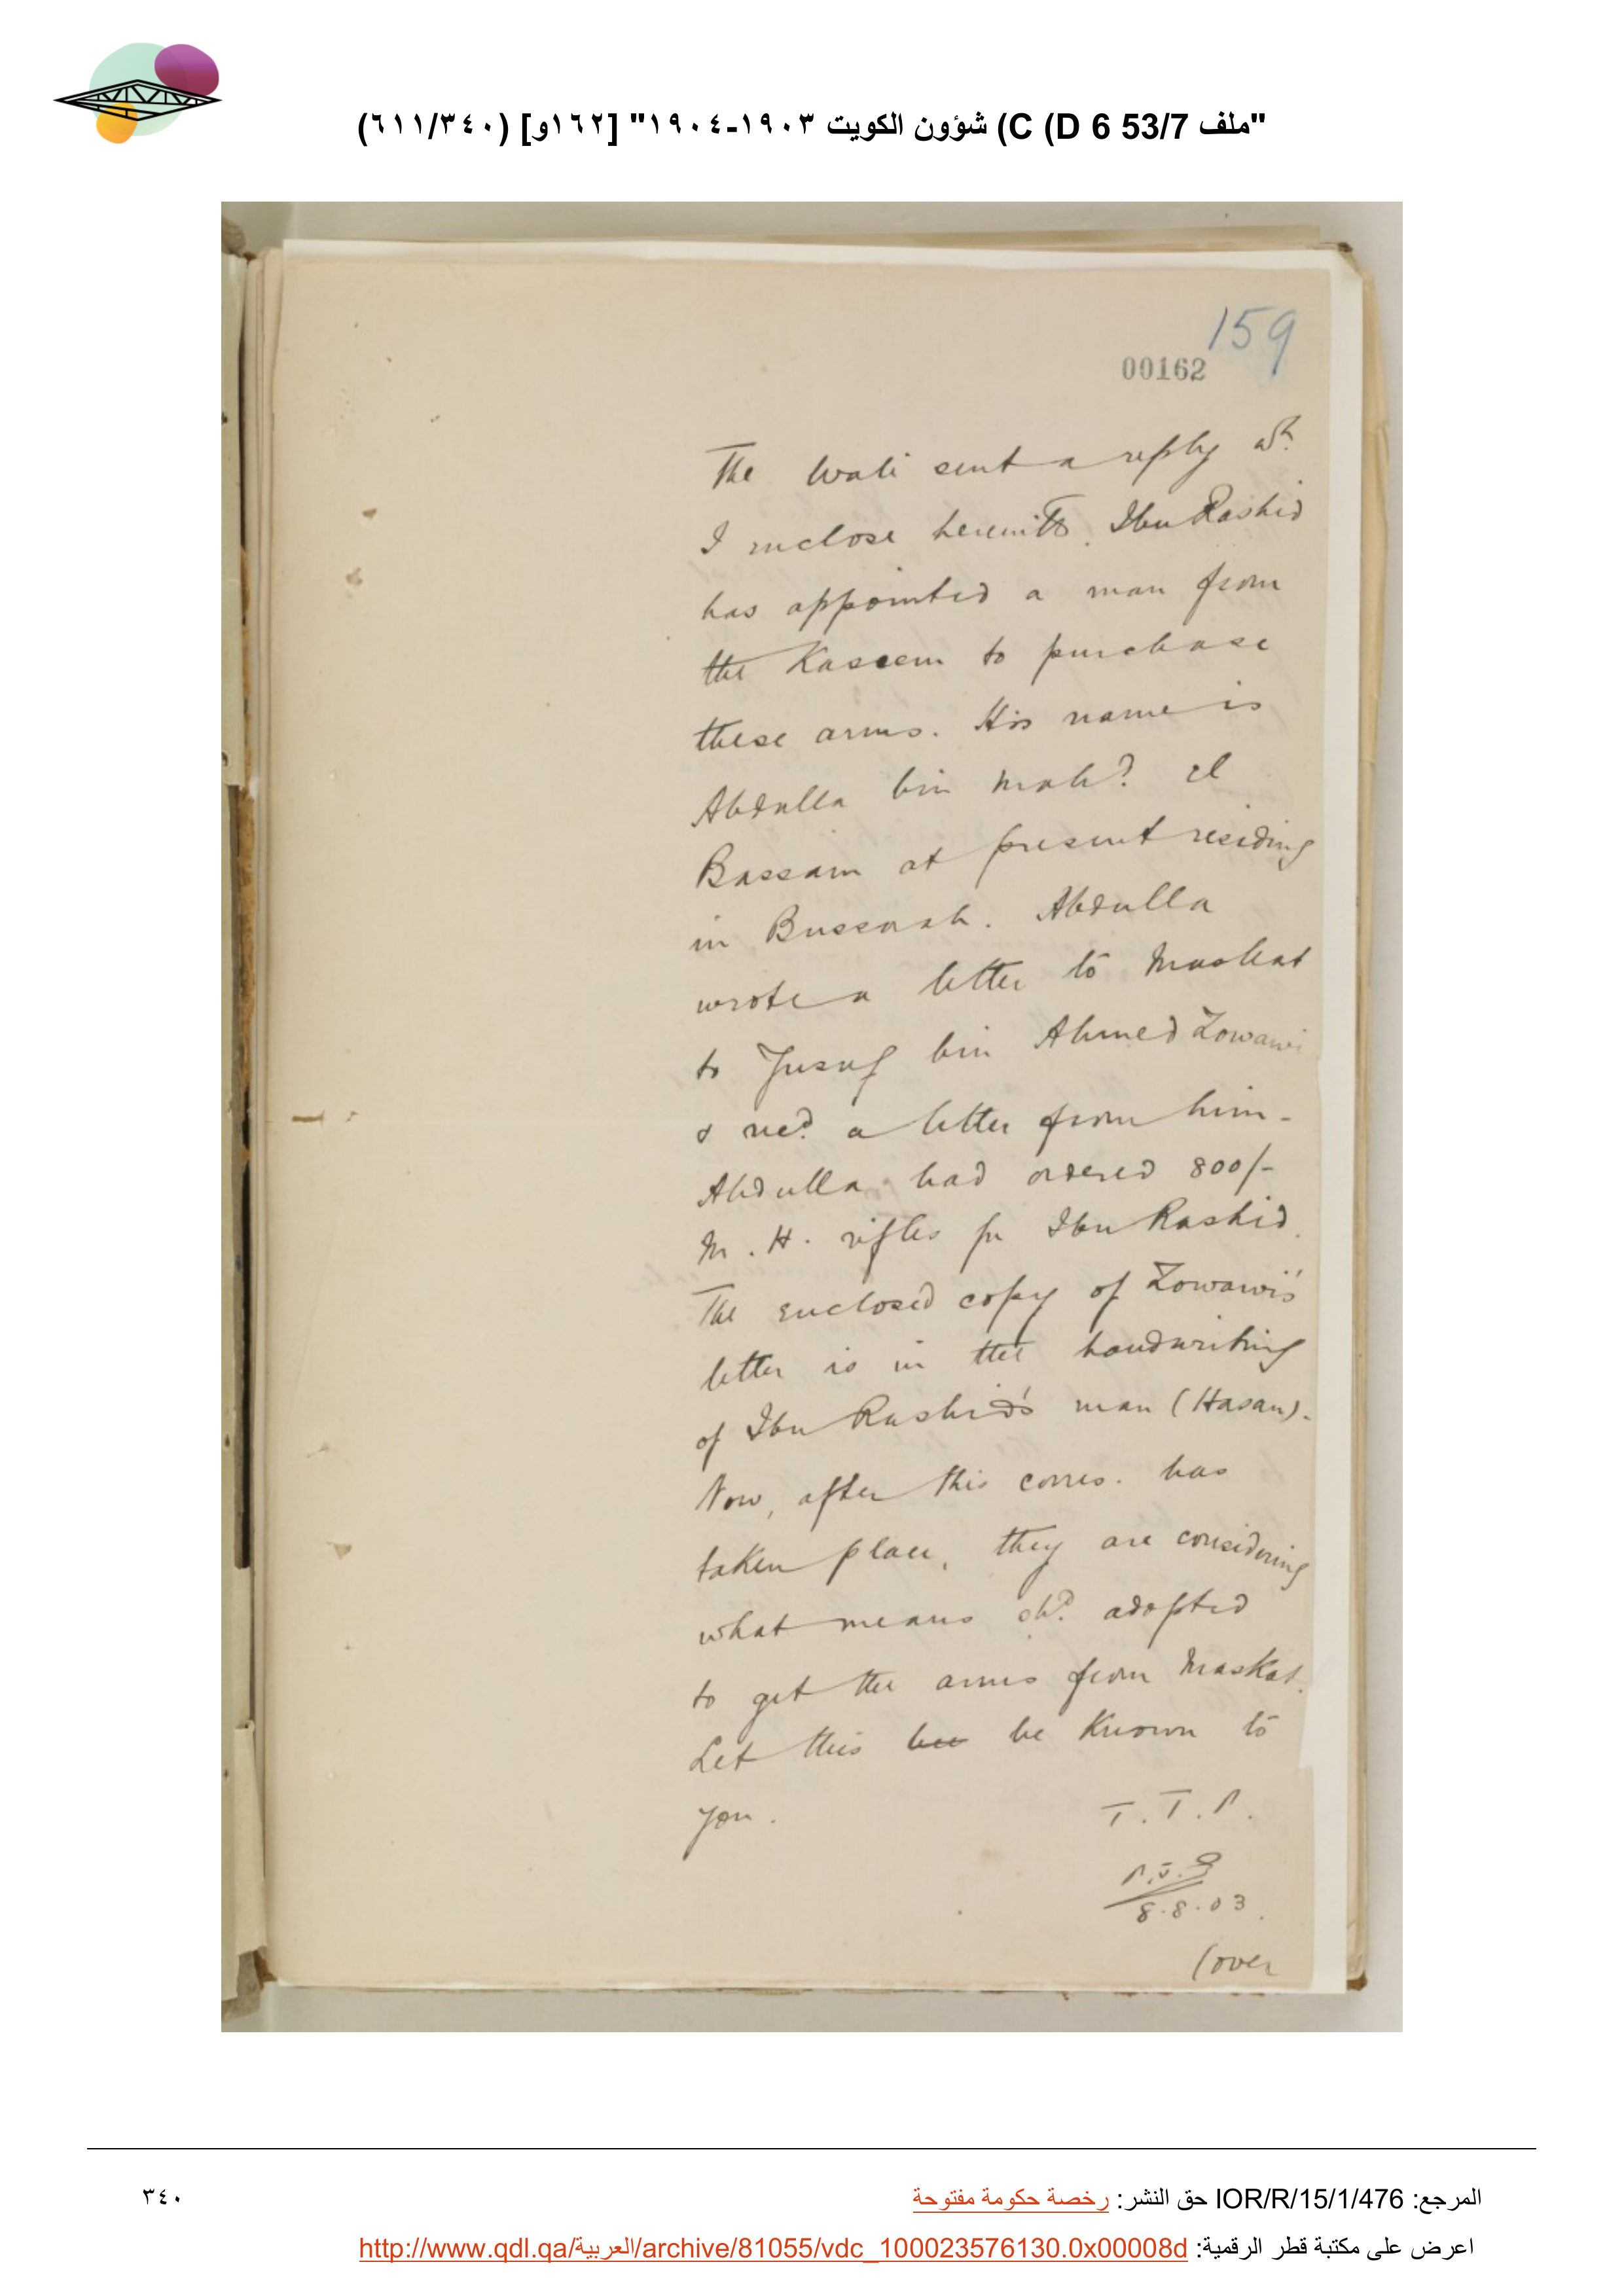 "ملف 53/7 D 6) C) شؤون الكويت ١٩٠٣-١٩٠٤" [١٦٢و] (٦١١/٣٤٠)
159
00162
The Wali sent a reply wh.
I enclose herewith. Ibn Rashid
has appointed a man from
the Kaseem to purchase
these arms. His name is
Abdulla bin Mahd. el
Bassam at present residing
in Bussorah. Abdulla
wrote a letter to Maskat
to Yusuf bin Ahmed Zowawi
& recd. a letter from him -
Abdulla had ordered 800/-
M. H. rifles for Ibn Rashid.
The enclosed copy of Zowawi's
letter is in the handwriting
of Ibn Rashid's man (Hasan).
Now, after this corres. has
taken place, they are considering
what means shd. adopted
to get the arms from Maskat.
Let this be known to
you.
T. T. P.
8.8.03.
(over
المرجع: IOR/R/15/1/476 حق النشر: رخصة حكومة مفتوحة
٣٤٠
اعرض على مكتبة قطر الرقمية: http://www.qdl.qa/العربية/archive/81055/vdc_100023576130.0x00008d